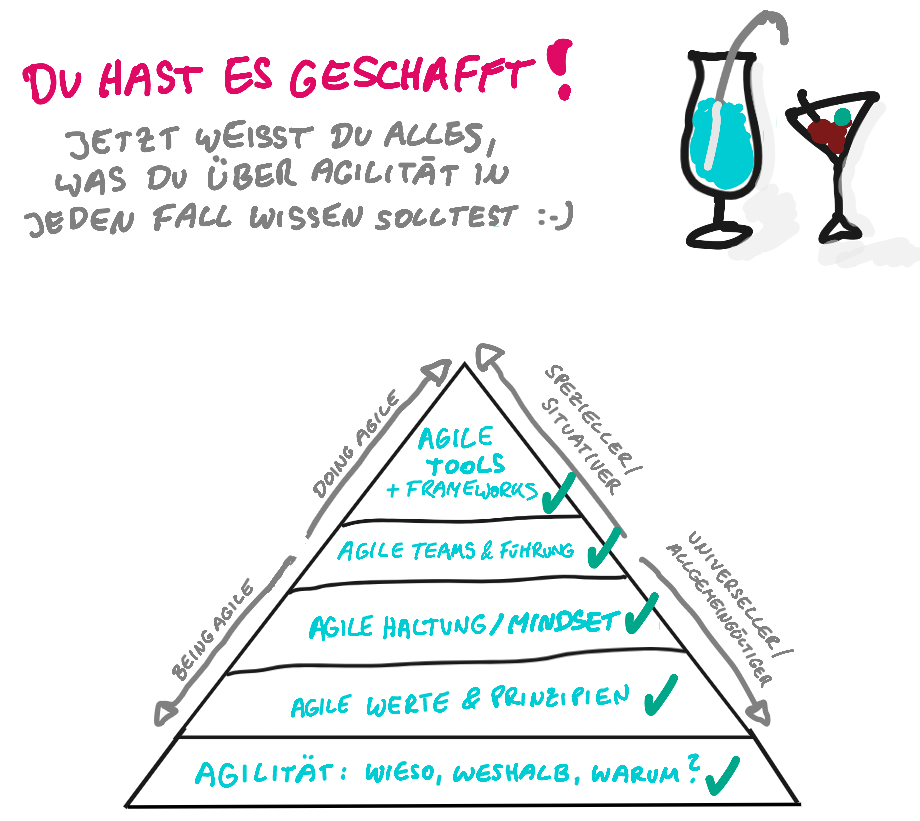 DU HAST ES GESCHAFFT!
JETZT WEISST DU ALLES,
WAS DU ÜBER AGILITÄT IN
JEDEN FALL WISSEN SOLLTEST :-)
DOING AGILE
SPEZIELLER/
SITUATIVER
AGILE
TOOLS
+ FRAMEWORKS
AGILE TEAMS & FÜHRUNG
BEING AGILE
UNIVERSELLER/
ALLGEMEINGÜLTIGER
AGILE HALTUNG/MINDSET
AGILE WERTE & PRINZIPIEN
AGILITÄT: WIESO, WESHALB, WARUM?